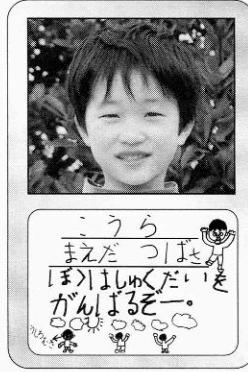 こうら
まえだ つばさ
ぼくはしゅくだいを
がんばるぞー。